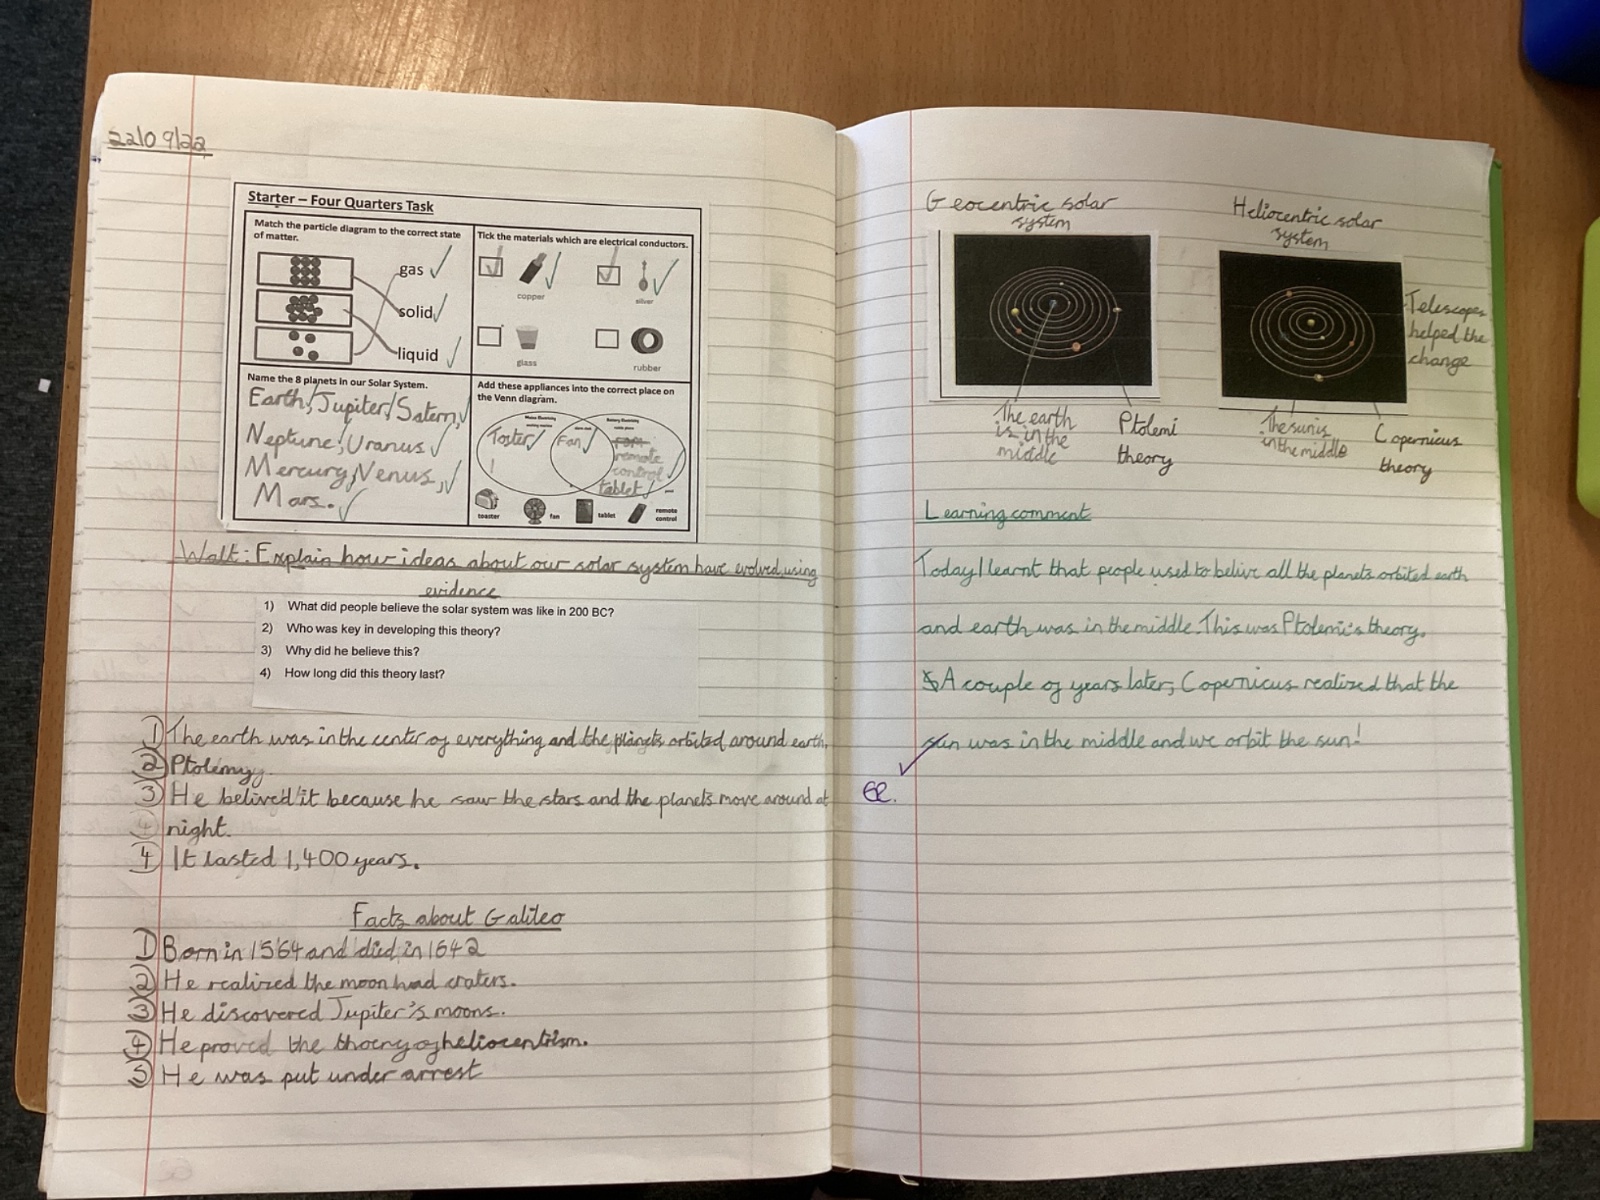 22/09/22
Starter – Four Quarters Task
Match the particle diagram to the correct state
of matter.
gas
solid
liquid
Tick the materials which are electrical conductors.
copper
silver
glass
rubber
Name the 8 planets in our Solar System.
Earth, Jupiter, Saturn,
Neptune, Uranus
Mercury, Venus,
Mars.
Add these appliances into the correct place on
the Venn diagram.
Mains Electricity
Battery Electricity
washing machine
mobile phone
Toster
Fan
remote
control
tablet
toaster
fan
tablet
remote
control
Walt: Explain how ideas about our solar system have evolved using
evidence
1) What did people believe the solar system was like in 200 BC?
2) Who was key in developing this theory?
3) Why did he believe this?
4) How long did this theory last?
1) The earth was in the center of everything and the planets orbited around earth.
2) Ptolemy.
3) He belived it because he saw the stars and the planets move around at
night.
4) It lasted 1,400 years.
Facts about Galileo
1) Born in 1564 and died in 1642
2) He realized the moon had craters.
3) He discovered Jupiter's moons.
4) He proved the thoery of heliocentrism.
5) He was put under arrest
Geocentric solar
system
Heliocentric solar
system
Telescopes
helped the
change
The earth
is in the
middle
Ptolemi
theory
The sun is
in the middle
Copernicus
theory
Learning comment
Today I learnt that people used to belive all the planets orbited earth
and earth was in the middle. This was Ptolemi's theory.
A couple of years later, Copernicus realized that the
sun was in the middle and we orbit the sun!